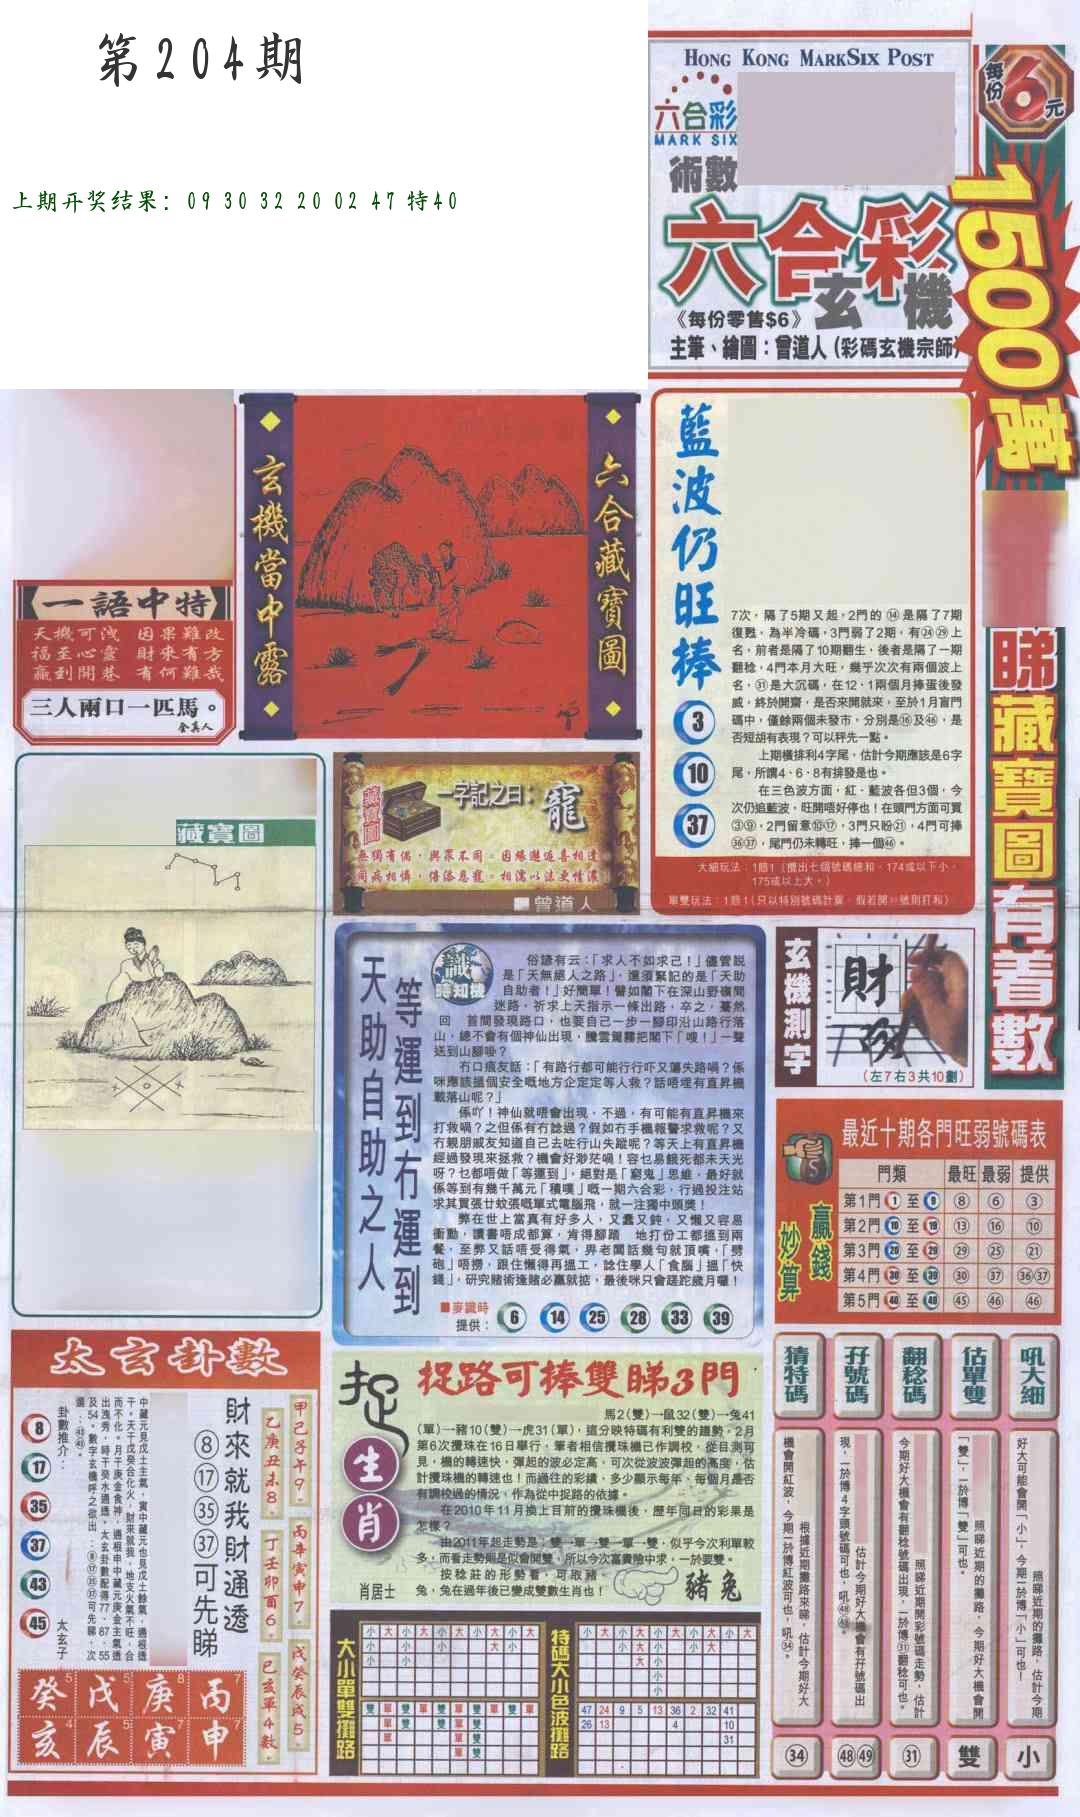 第204期
上期开奖结果：09 30 32 20 02 47 特40
HONG KONG MARKSIX POST
六合彩
MARK SIX
術數
六合彩
玄機
《每份零售$6》
主筆、繪圖：曾道人（彩碼玄機宗師）
每份6元
1500萬
睇藏寶圖有着數
一語中特
天機可洩 因果難改
福至心靈 財來有方
贏到開巷 有何難哉
三人兩口一匹馬。
玄機當中露
六合藏寶圖
藍波仍旺捧
3
10
37
7次，隔了5期又起，2門的⑭是隔了7期
復甦，為半冷碼，3門弱了2期，有㉔㉙上
名，前者是隔了10期翻生，後者是隔了一期
翻稔，4門本月大旺，幾乎次次有兩個波上
名，㉛是大沉碼，在12、1兩個月捧蛋後發
威，終於開齋，是否來開就來，至於1月盲門
碼中，僅餘兩個未發市，分別是⑯及㊻，是
否短胡有表現？可以秤先一點。
上期橫排利4字尾，估計今期應該是6字
尾，所謂4、6、8有排發是也。
在三色波方面，紅、藍波各但3個，今
次仍追藍波，旺開唔好停也！在頭門方面可買
③⑨，2門留意⑩⑰，3門只盼㉑，4門可捧
㊱㊲，尾門仍未轉旺，捧一個㊻。
大細玩法：1賠1（攪出七個號碼總和，174或以下小，
175或以上大。）
藏寶圖
一字記之曰：龍
無獨有偶，與眾不同。因緣邂逅喜相逢
同病相憐，倍添恩寵。相濡以沫更情濃
曾道人
天助自助之人
等運到冇運到
識時知機
俗諺有云：「求人不如求己！」儘管説
是「天無絕人之路」，還須緊記的是「天助
自助者！」好簡單！譬如閣下在深山野嶺間
迷路，祈求上天指示一條出路，卒之，驀然
回首間發現路口，也要自己一步一腳印沿山路行落
山，總不會有個神仙出現，騰雲駕霧把閣下「嗖！」一聲
送到山腳啩？
冇口痕友話：「有路行都可能行行吓又蕩失路？係
咪應該搵個安全嘅地方企定定等人救？話唔埋有直昇機
載落山呢？」
係吖！神仙就唔會出現，不過，有可能有直昇機來
打救喎？之但係有冇諗過？假如冇手機報警求救呢？又
冇親朋戚友知道自己去咗行山失蹤呢？等天上有直昇機
經過發現來拯救？機會好渺茫喎！容乜易餓死都未天光
呀？乜都唔做「等運到」，絕對是「窮鬼」思維，最好就
係等到有幾千萬元「積噗」嘅一期六合彩，行過投注站
求其買張廿蚊張嘅單式電腦飛，就一注獨中頭獎！
弊在世上當真有好多人，又蠢又鈍，又懶又容易
衝動，讀書唔成都算，肯得腳踏　地打份工都搵到兩
餐，至弊又話唔受得氣，畀老闆話幾句就頂嘴，「劈
砲」唔撈，跟住懶得再搵工，諗住學人「食腦」搵「快
錢」，研究賭術逢賭必贏就掂，最後咪只會蹉跎歲月囉！
麥識時
提供：
6 14 25 28 33 39
玄機測字
財
（左7右3共10劃）
最近十期各門旺弱號碼表
贏錢妙算
門類 最旺 最弱 提供
第1門①至⑨ ⑧ ⑥ ③
第2門⑩至⑲ ⑬ ⑯ ⑩
第3門⑳至㉙ ㉙ ㉕ ㉑
第4門㉚至㊴ ㉚ ㊲ ㊱㊲
第5門㊵至㊾ ㊺ ㊻ ㊻
太玄卦數
甲己子午9。
乙庚丑未8。
丙辛寅申7。
丁壬卯酉6。
戊癸辰戌5。
巳亥單4數。
財來就我財通透
⑧⑰㉟㊲可先睇
卦數推介：
8
17
35
37
43
45
太玄子
癸 戊 庚 丙
亥 辰 寅 申
捉
生肖
捉路可捧雙睇3門
馬2（雙）→鼠32（雙）→兔41
（單）→豬10（雙）→虎31（單），這分映特碼有利雙的趨勢。2月
第6次攪珠在16日舉行，筆者相信攪珠機已作調校，從目測可
見，機的轉速快，彈起的波必定高，可次從波波彈超的高度，估
計攪珠機的轉速也！而過往的彩績，多少顯示每年、每個月是否
有調校過的情況，作為從中捉路的依據。
在2010年11月換上目前的攪珠機後，歷年同日的彩果是
怎樣？
由2011年起走勢是：雙→單→雙→單→雙，似乎今次利單較
多，而看走勢則是似會開雙，所以今次富貴險中求，一於要雙。
按稔莊的形勢看，可取豬、
兔，兔在過年後已變成雙數生肖也！
肖居士
豬 兔
大小單雙攤路
特碼大小色波攤路
47 24 9 5 13 36 2 32 41
26 13 4 10
31
猜特碼
根據近期攤路來睇，估計今期好大
機會開紅波，今期一於博紅波可也，吼㉞。
㉞
孖號碼
估計今期好大機會有孖號碼出
現，一於博4字頭號碼可也，吼㊽㊾。
㊽㊾
翻稔碼
照睇近期開彩號碼走勢，估計
今期好大機會有翻稔號碼出現，一於博㉛翻稔可也。
㉛
估單雙
照睇近期的攤路，今期好大機會開
「雙」，一於博「雙」可也。
雙
吼大細
照睇近期的攤路，估計今期
好大可能會開「小」，今期一於博「小」可也！
小